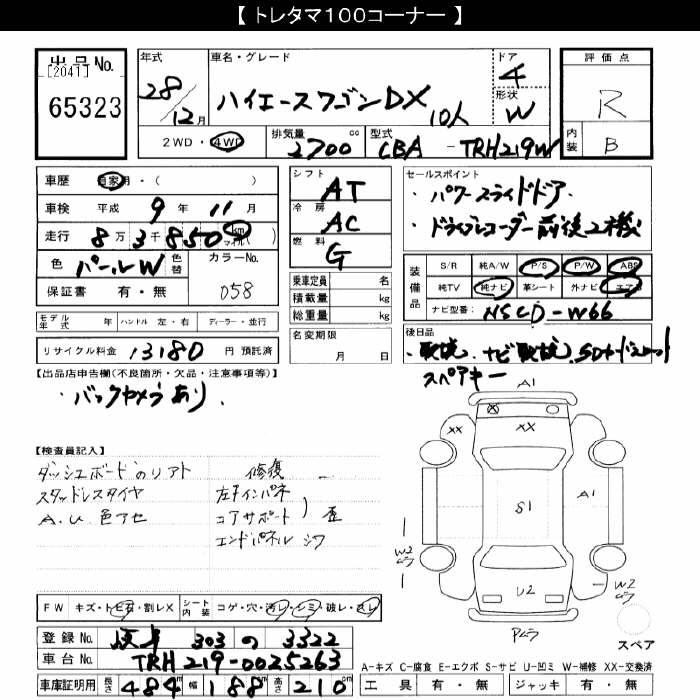 【 トレタマ100コーナー 】
出品No.
[2041]
65323
年式
28/12月
車名・グレード
ハイエースワゴンDX 10人
ドア
4
形状
W
評価点
R
内装
B
2WD・4WD
排気量 2700 cc
型式 CBA - TRH219W
車歴 自家用・( )
車検 平成 9年 11月
走行 8万3千850 km マイル( )
色 パールW 色替 カラーNo. 058
保証書 有・無
シフト AT
冷房 AC
燃料 G
乗車定員 名
積載量 kg
総重量 kg
セールスポイント
・パワースライドドア
・ドライブレコーダー前後2機
装備品
S/R 純A/W P/S P/W ABS
純TV 純ナビ 革シート 外ナビ エアB
ナビ型番: NSCD-W66
モデル年式 年 ハンドル 左・右 ディーラー・並行
リサイクル料金 13180 円 預託済
名変期限 月 日
後日品
・取説、ナビ取説、SDカード
スペアキー
【出品店申告欄(不良箇所・欠品・注意事項等)】
・バックカメラあり、
【検査員記入】
ダッシュボードのリアト
スタッドレスタイヤ
A.W.色アセ
修復
左Fインパネ
コアサポート 歪
エンドパネル シワ
FW キズ・トビ石・割レX
シート内装 コゲ・穴・汚レ・シミ・破レ・スレ
登録No. 岐阜 303 の 3322
車台No. TRH219-0025263
車庫証明用 長さ 484cm 幅 188cm 高さ 210cm
A1
XX
XX
S1
A1
W2
ムラ
U2
W2
ムラ
Pムラ
スペア
A-キズ C-腐食 E-エクボ S-サビ U-凹ミ W-補修 XX-交換済
工具 有・無 ジャッキ 有・無